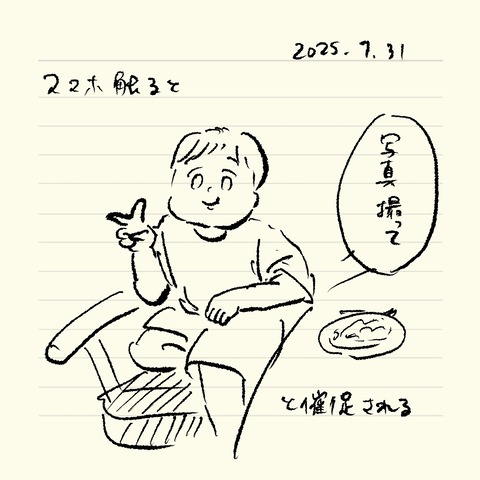 2025.7.31
スマホ触ると
写真
撮って
と催促される